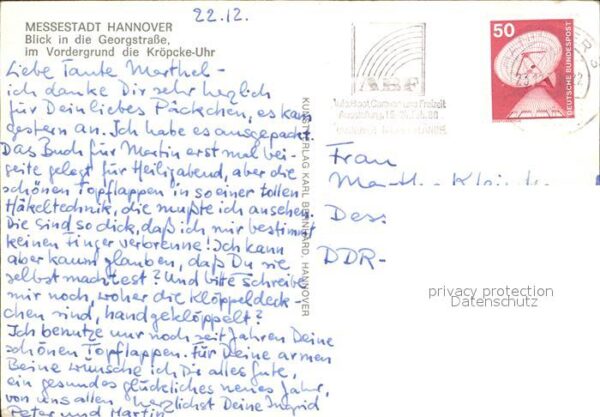 22.12.
MESSESTADT HANNOVER
Blick in die Georgstraße,
im Vordergrund die Kröpcke-Uhr
Liebe Tante Marthel -
ich danke Dir sehr herzlich
für Dein liebes Päckchen, es kam
gestern an. Ich habe es ausgepackt.
Das Buch für Martin erst mal bei-
seite gelegt für Heiligabend, aber die
schönen Topflappen in so einer tollen
Häkeltechnik, die mußte ich ansehen.
Die sind so dick, daß ich mir bestimmt
keinen Finger verbrenne! Ich kann
aber kaum glauben, daß Du sie
selbst machtest? Und bitte schreibe
mir noch, woher die Klöppeldeck-
chen sind, handgeklöppelt?
Ich benutze nur noch seit Jahren Deine
schönen Topflappen. Für Deine armen
Beine wünsche ich Dir alles Gute,
ein gesundes glückliches neues Jahr,
von uns allen herzlichst Deine Ingrid
Peter und Martin
KUNSTVERLAG KARL BERNHARD, HANNOVER
ABF
Auto Boot Camping und Freizeit
50
DEUTSCHE BUNDESPOST
Frau
Dess
DDR-
privacy protection
Datenschutz